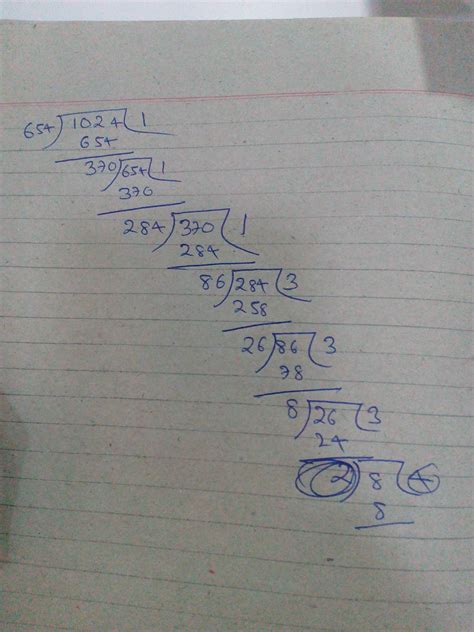 654)1024(1
654
370)654(1
370
284)370(1
284
86)284(3
258
26)86(3
78
8)26(3
24
2)8(4
8